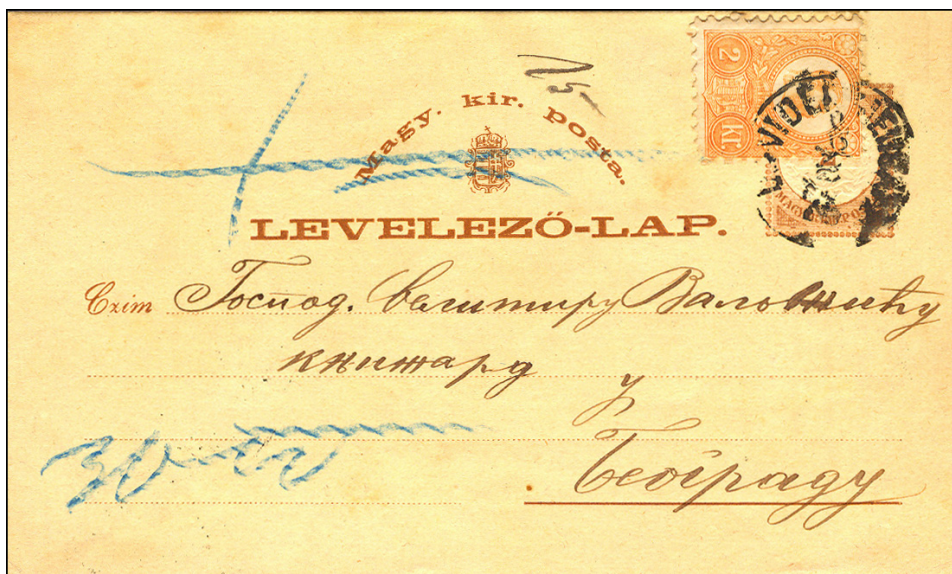 Magy. kir. posta.
2 kr.
LEVELEZŐ-LAP.
Czim Господ. Велимиру Валожићу
књижару
у
Београду